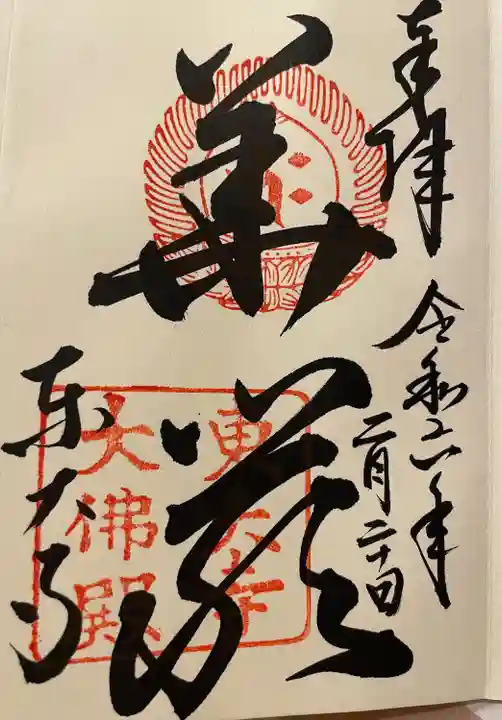 奉拝
令和六年
二月二十四日
華厳
東大寺
東大寺
大佛殿